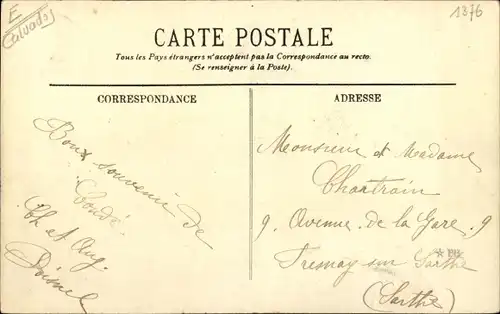 E
Calvados
1376
CARTE POSTALE
Tous les Pays étrangers n'acceptent pas la Correspondance au recto.
(Se renseigner à la Poste).
CORRESPONDANCE
Bonx souvenir de
Condé.
Th et Aug.
ADRESSE
Monsieur et Madame
Chartrain
9. Avenue de la Gare. 9
Fresnay sur Sarthe
(Sarthe)